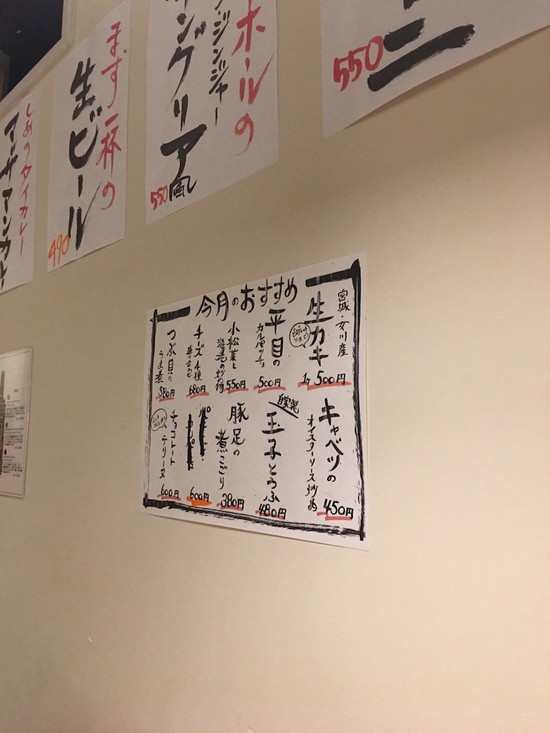 550
ニ
ホールの
ジンジャー
ングリア
風
550
まず一杯の
生ビール
490
しめのタイカレー
マッサマンカレー
今月のおすすめ
宮城・女川産
生カキ
1ヶ 500円
平目の
カルパッチョ
500円
小松菜と
550円
チーズ4種
盛合せ
680円
つぶ貝の
うま煮
580円
キャベツの
オイスターソース炒め
450円
自家製
玉子とうふ
480円
豚足の
煮こごり
380円
600円
チョコレート
テリーヌ
600円